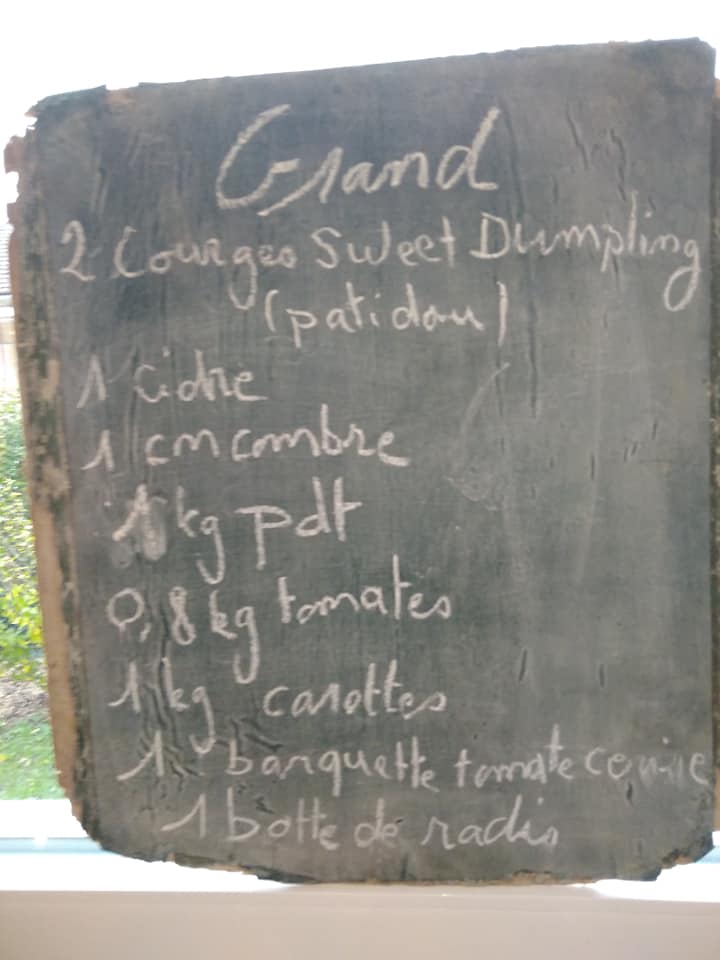 Grand
2 Courges Sweet Dumpling
(patidou)
1 cidre
1 concombre
1 kg pdt
0,8 kg tomates
1 kg carottes
1 barquette tomate cerise
1 botte de radis